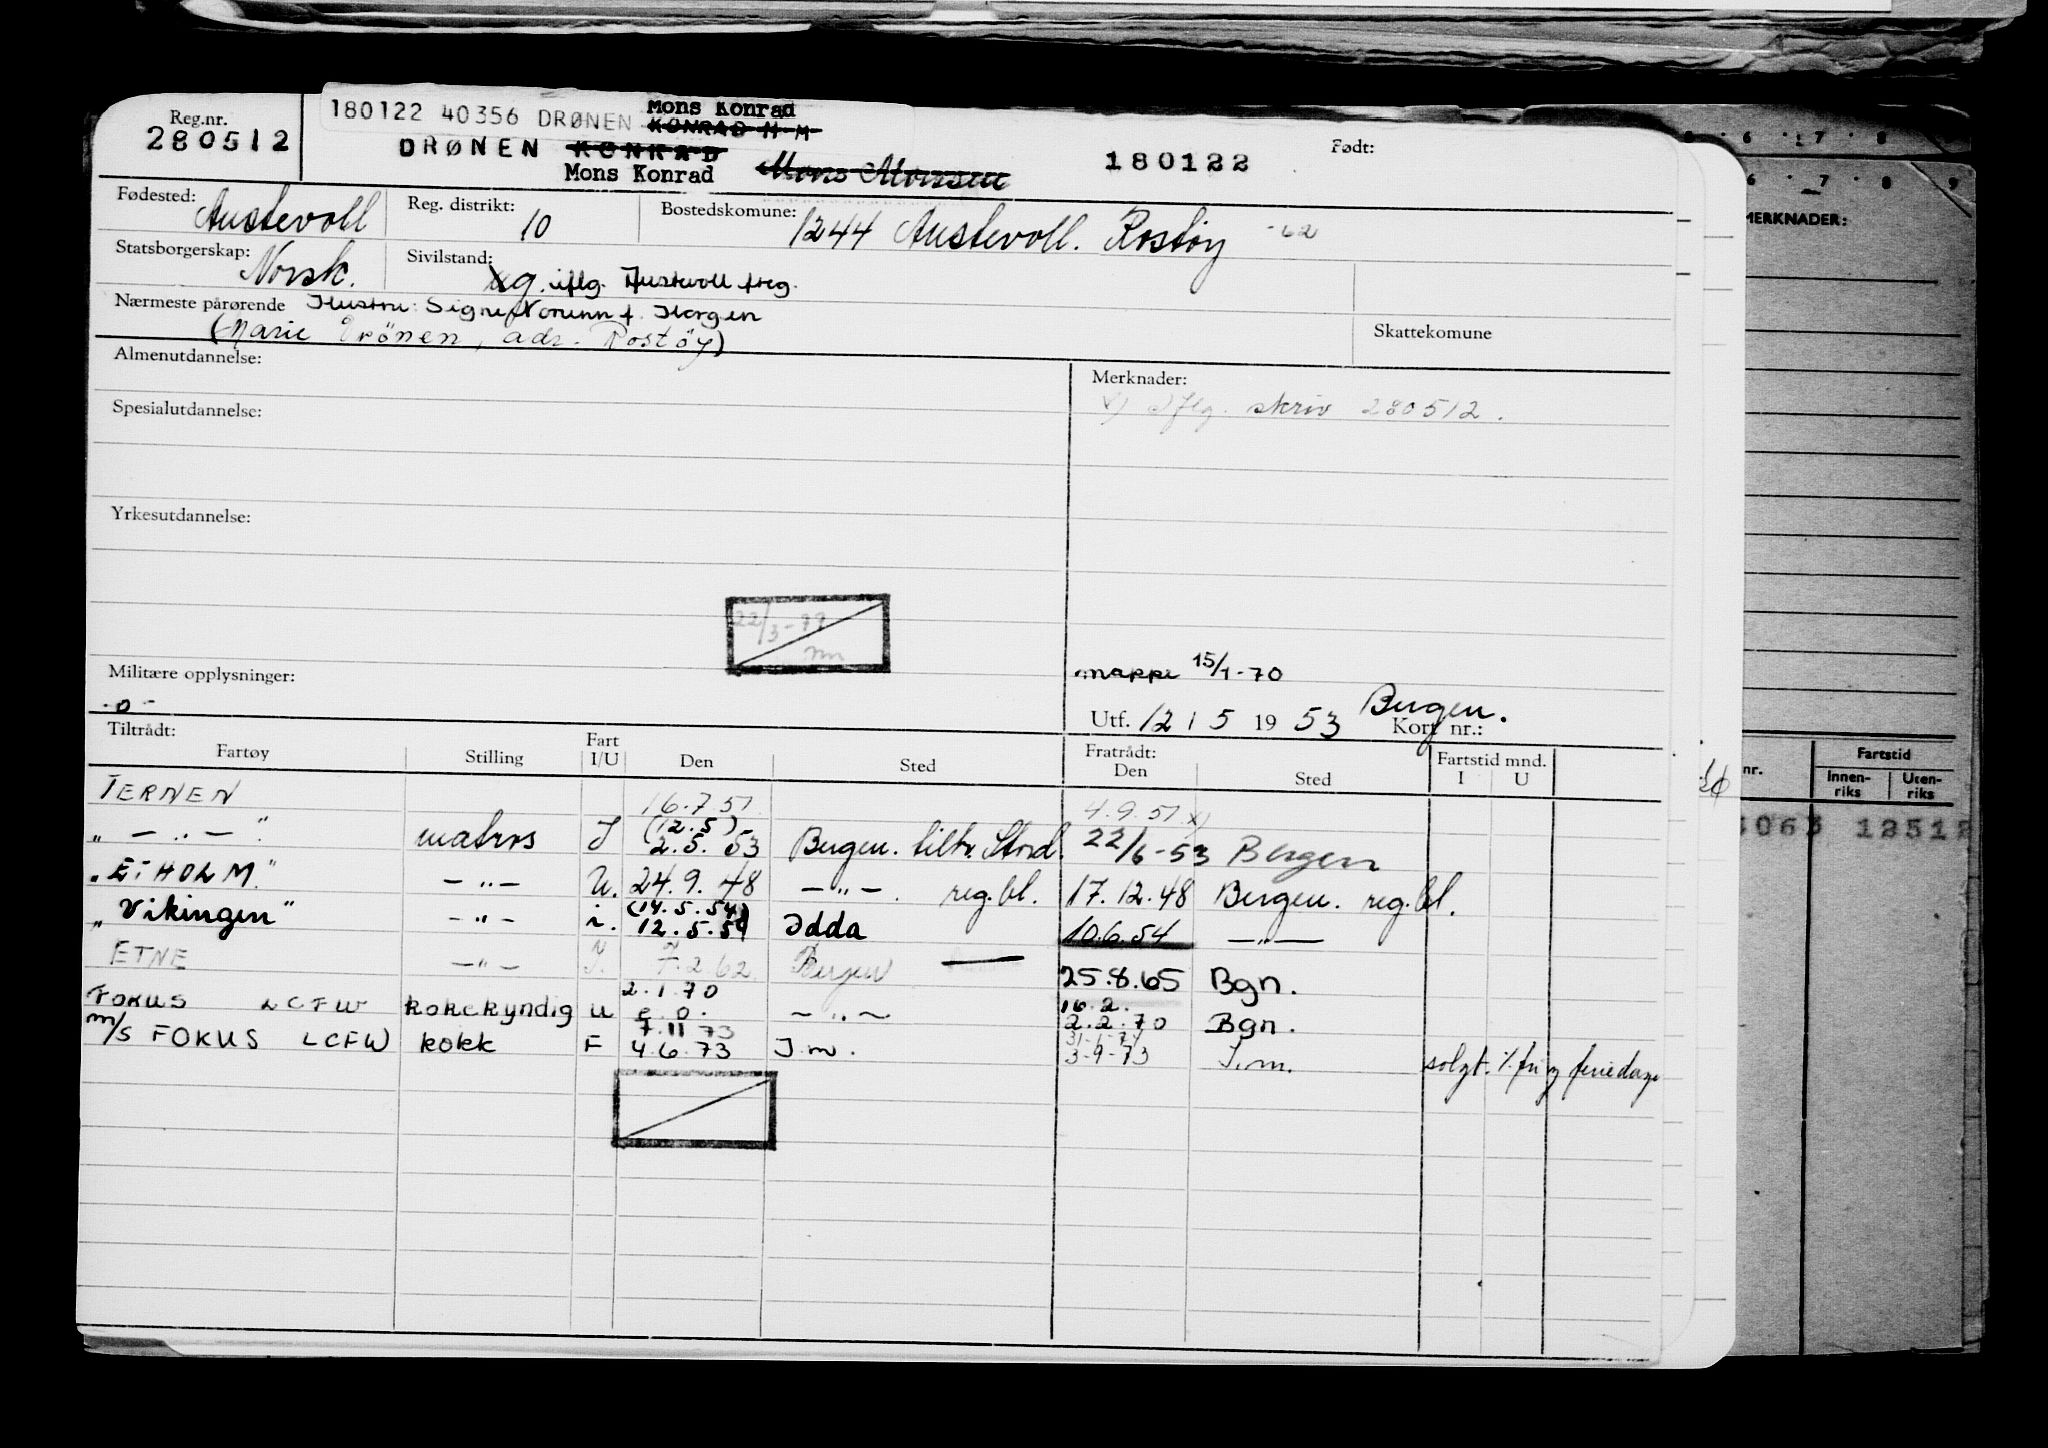 Reg.nr.
280512
180122 40356 DRØNEN Mons Konrad
KONRAD H M
DRØNEN KONRAD Mons Monsen 180122 Født:
Mons Konrad
Fødested: Austevoll Reg. distrikt: 10 Bostedskomune: 1244 Austevoll. Rostøy -62
Statsborgerskap: Norsk. Sivilstand: g. iflg. Austevoll freg.
Nærmeste pårørende Hustru: Signe f. Horgen
(Marie Drönen, adr. Rostöy) Skattekomune
Almenutdannelse: Merknader:
x) Iflg. skriv 280512.
Spesialutdannelse:
Yrkesutdannelse:
22/3-
Militære opplysninger: mappe 15/1-70
-0- Utf. 12 / 5 19 53 Bergen. Kort nr.:
Tiltrådt: Fratrådt: Fartstid mnd.
Fartøy Stilling Fart I/U Den Sted Den Sted I U
TERNEN 16.7.51 4.9.51 x)
" — " — " matros I (12.5) 2.5.53 Bergen. tiltr. Stord. 22/6-53 Bergen
"ETHOLM" — " — U. 24.9.48 — " — reg.bl. 17.12.48 Bergen. reg.bl.
"Vikingen" — " — i. (14.5.54) 12.5.54 Odda 10.6.54 — " —
ETNE — " — I. 7.2.62 Bergen 25.8.65 Bgn.
FOKUS LCFW kokekyndig U 2.1.70 — " — 16.2. 2.2.70 Bgn.
m/s FOKUS LCFW kokk F 7.11.73 4.6.73 I.m. 31-1-74 3-9-73 I.m. solgt. % fri og feriedage
5 · 6 · 7 · 8
6 · 7 · 8 9
MERKNADER:
nr. Fartstid
Innen-riks Uten-riks
063 12512